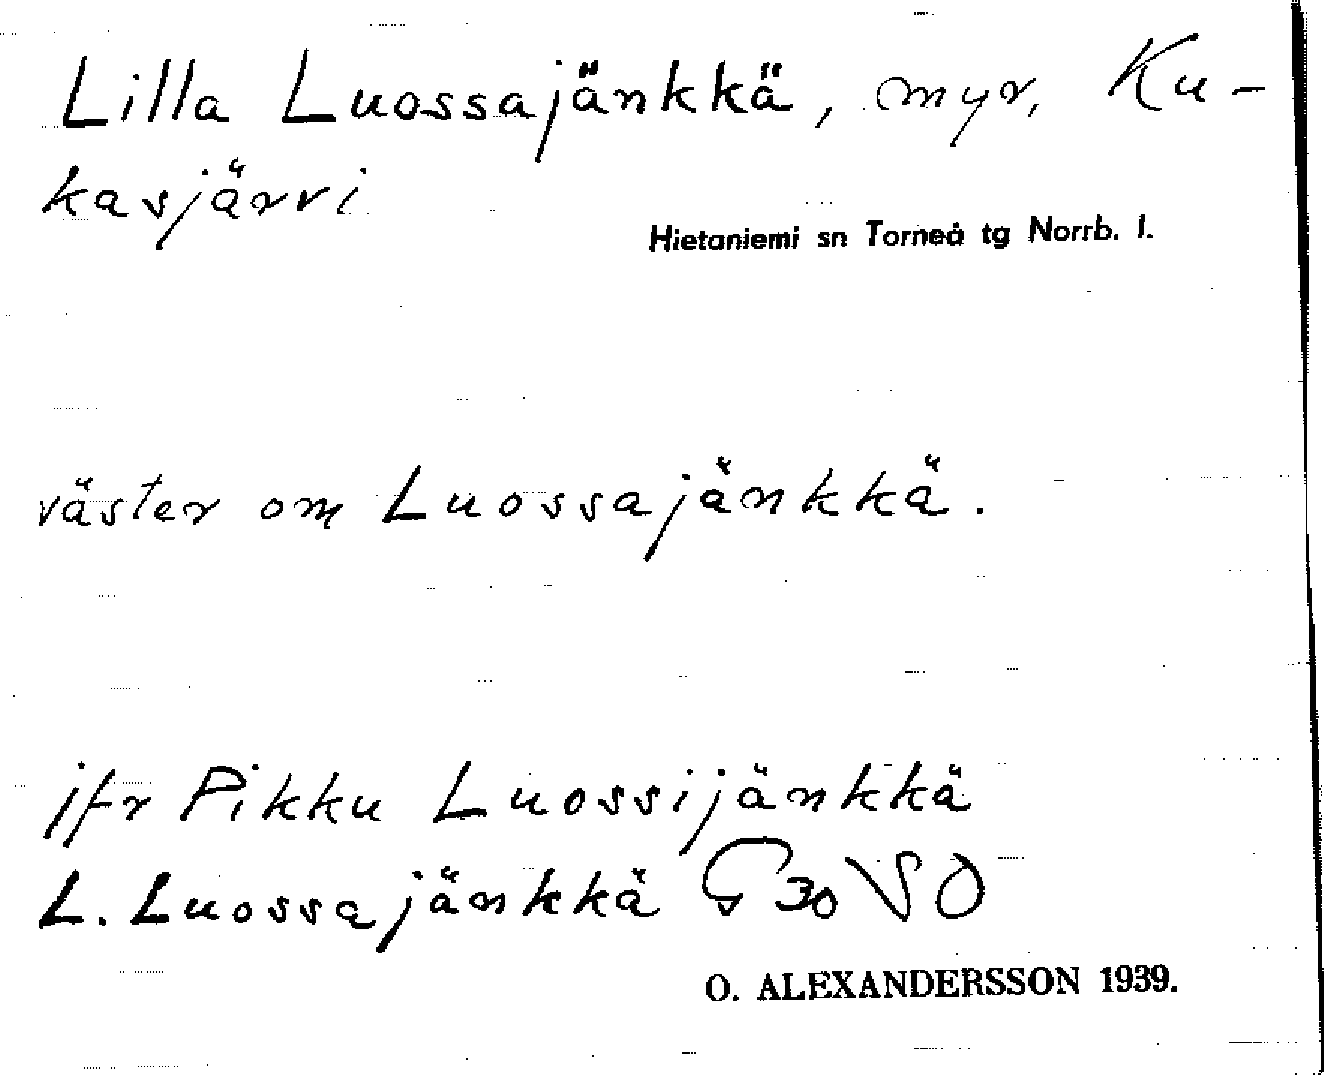 Lilla Luossajänkkä, myr, Ku-
kasjärvi
Hietaniemi sn Torneå tg Norrb. l.
väster om Luossajänkkä.
jfr Pikku Luossijänkkä
L. Luossajänkkä G 30 VSO
O. ALEXANDERSSON 1939.